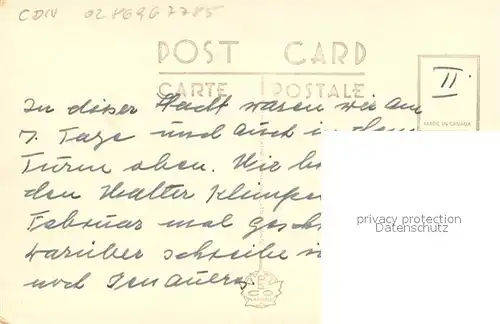 CDN 02 86967785
POST CARD
CARTE POSTALE
II
MADE IN CANADA
In dieser Stadt waren wir am
7. Tage und auch in dem
Turm oben. Wir
den Walter
Februar mal
darüber schreibe
noch Genaueres.
privacy protection
Datenschutz